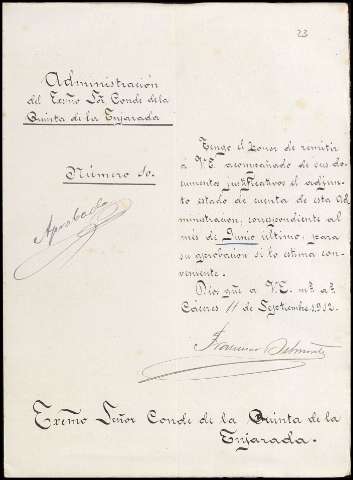 23
Administración
del Exmo Sór Conde de la
Quinta de la Enjarada
Número 10.
Aprobado
Tengo el honor de remitir
á V.E. acompañado de sus do-
cumentos justificativos el adjun-
to estado de cuenta de esta Ad-
ministracion, correspondiente al
mes de Junio último, para
su aprobacion si lo estima con-
veniente.
Dios gue á V.E. ms. as.
Cáceres 11 de Septiembre 1912.
Exmo Señor Conde de la Quinta de la
Enjarada.